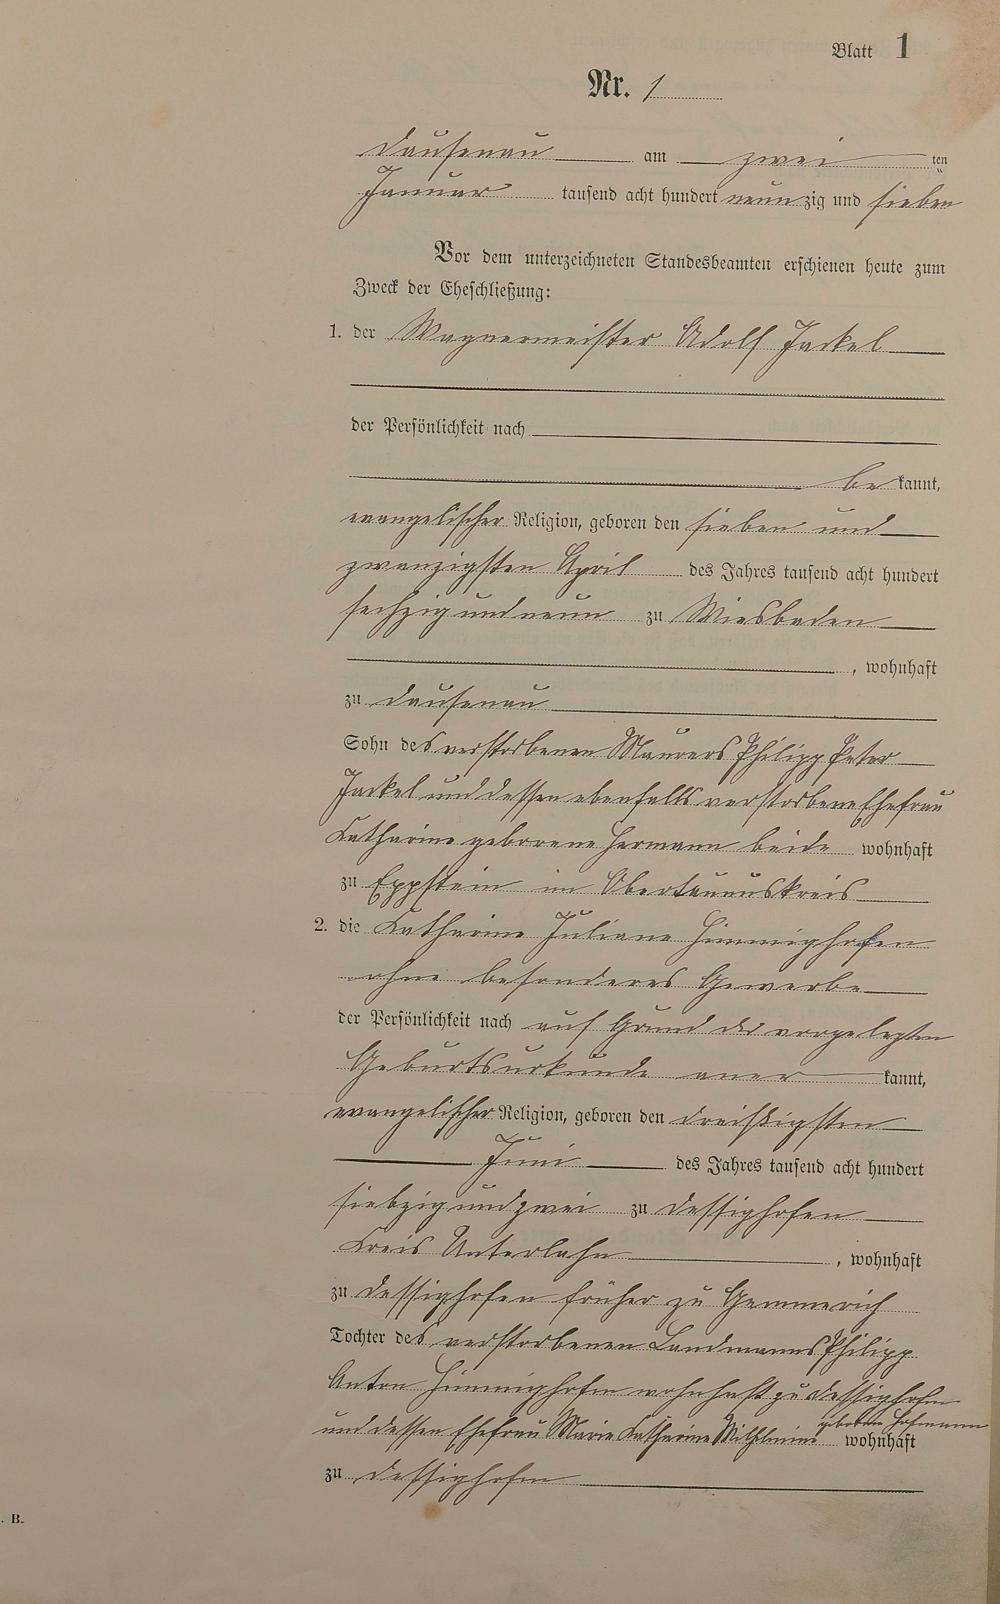 Blatt 1
Nr. 1
Dausenau am zwei ten
Januar tausend acht hundert neunzig und sieben
Vor dem unterzeichneten Standesbeamten erschienen heute zum
Zweck der Eheschließung:
1. der Wagnermeister Adolf Jackel
der Persönlichkeit nach
be kannt,
evangelischer Religion, geboren den sieben und
zwanzigsten April des Jahres tausend acht hundert
sechzig und neun zu Wiesbaden
, wohnhaft
zu Dausenau
Sohn des verstorbenen Maurers Philipp Peter
Jackel und dessen ebenfalls verstorbene Ehefrau
Katharine geborene Hermann beide wohnhaft
zu Eppstein im Obertaunuskreis
2. die Katharine Juliane Himmighofen
ohne besonderes Gewerbe
der Persönlichkeit nach auf Grund der vorgelegten
Geburtsurkunde aner kannt,
evangelischer Religion, geboren den dreißigsten
Juni des Jahres tausend acht hundert
siebzig und zwei zu Dessighofen
Kreis Unterlahn , wohnhaft
zu Dessighofen früher zu Gemmerich
Tochter des verstorbenen Landmanns Philipp
Anton Himmighofen wohnhaft zu Dessighofen
geborene Hofmann
und dessen Ehefrau Marie Katharine Wilhelmine wohnhaft
zu Dessighofen
. B.